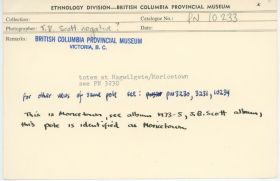 ETHNOLOGY DIVISION—BRITISH COLUMBIA PROVINCIAL MUSEUM
Collection: Catalogue No.: PN 10233
Photographer: J.B. Scott negative?
Remarks: BRITISH COLUMBIA PROVINCIAL MUSEUM
VICTORIA, B. C.
totem at Hagwilgete/Moricetown
see PN 3230
for other views of same pole see: PN3230, 3231, 10234
This is Moricetown, see album 1973-5, J.B. Scott album,
this pole is identified as Moricetown